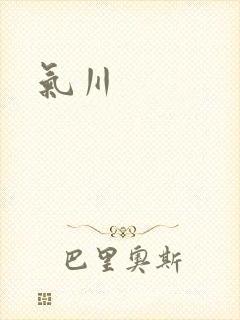 氣川
巴里奧斯